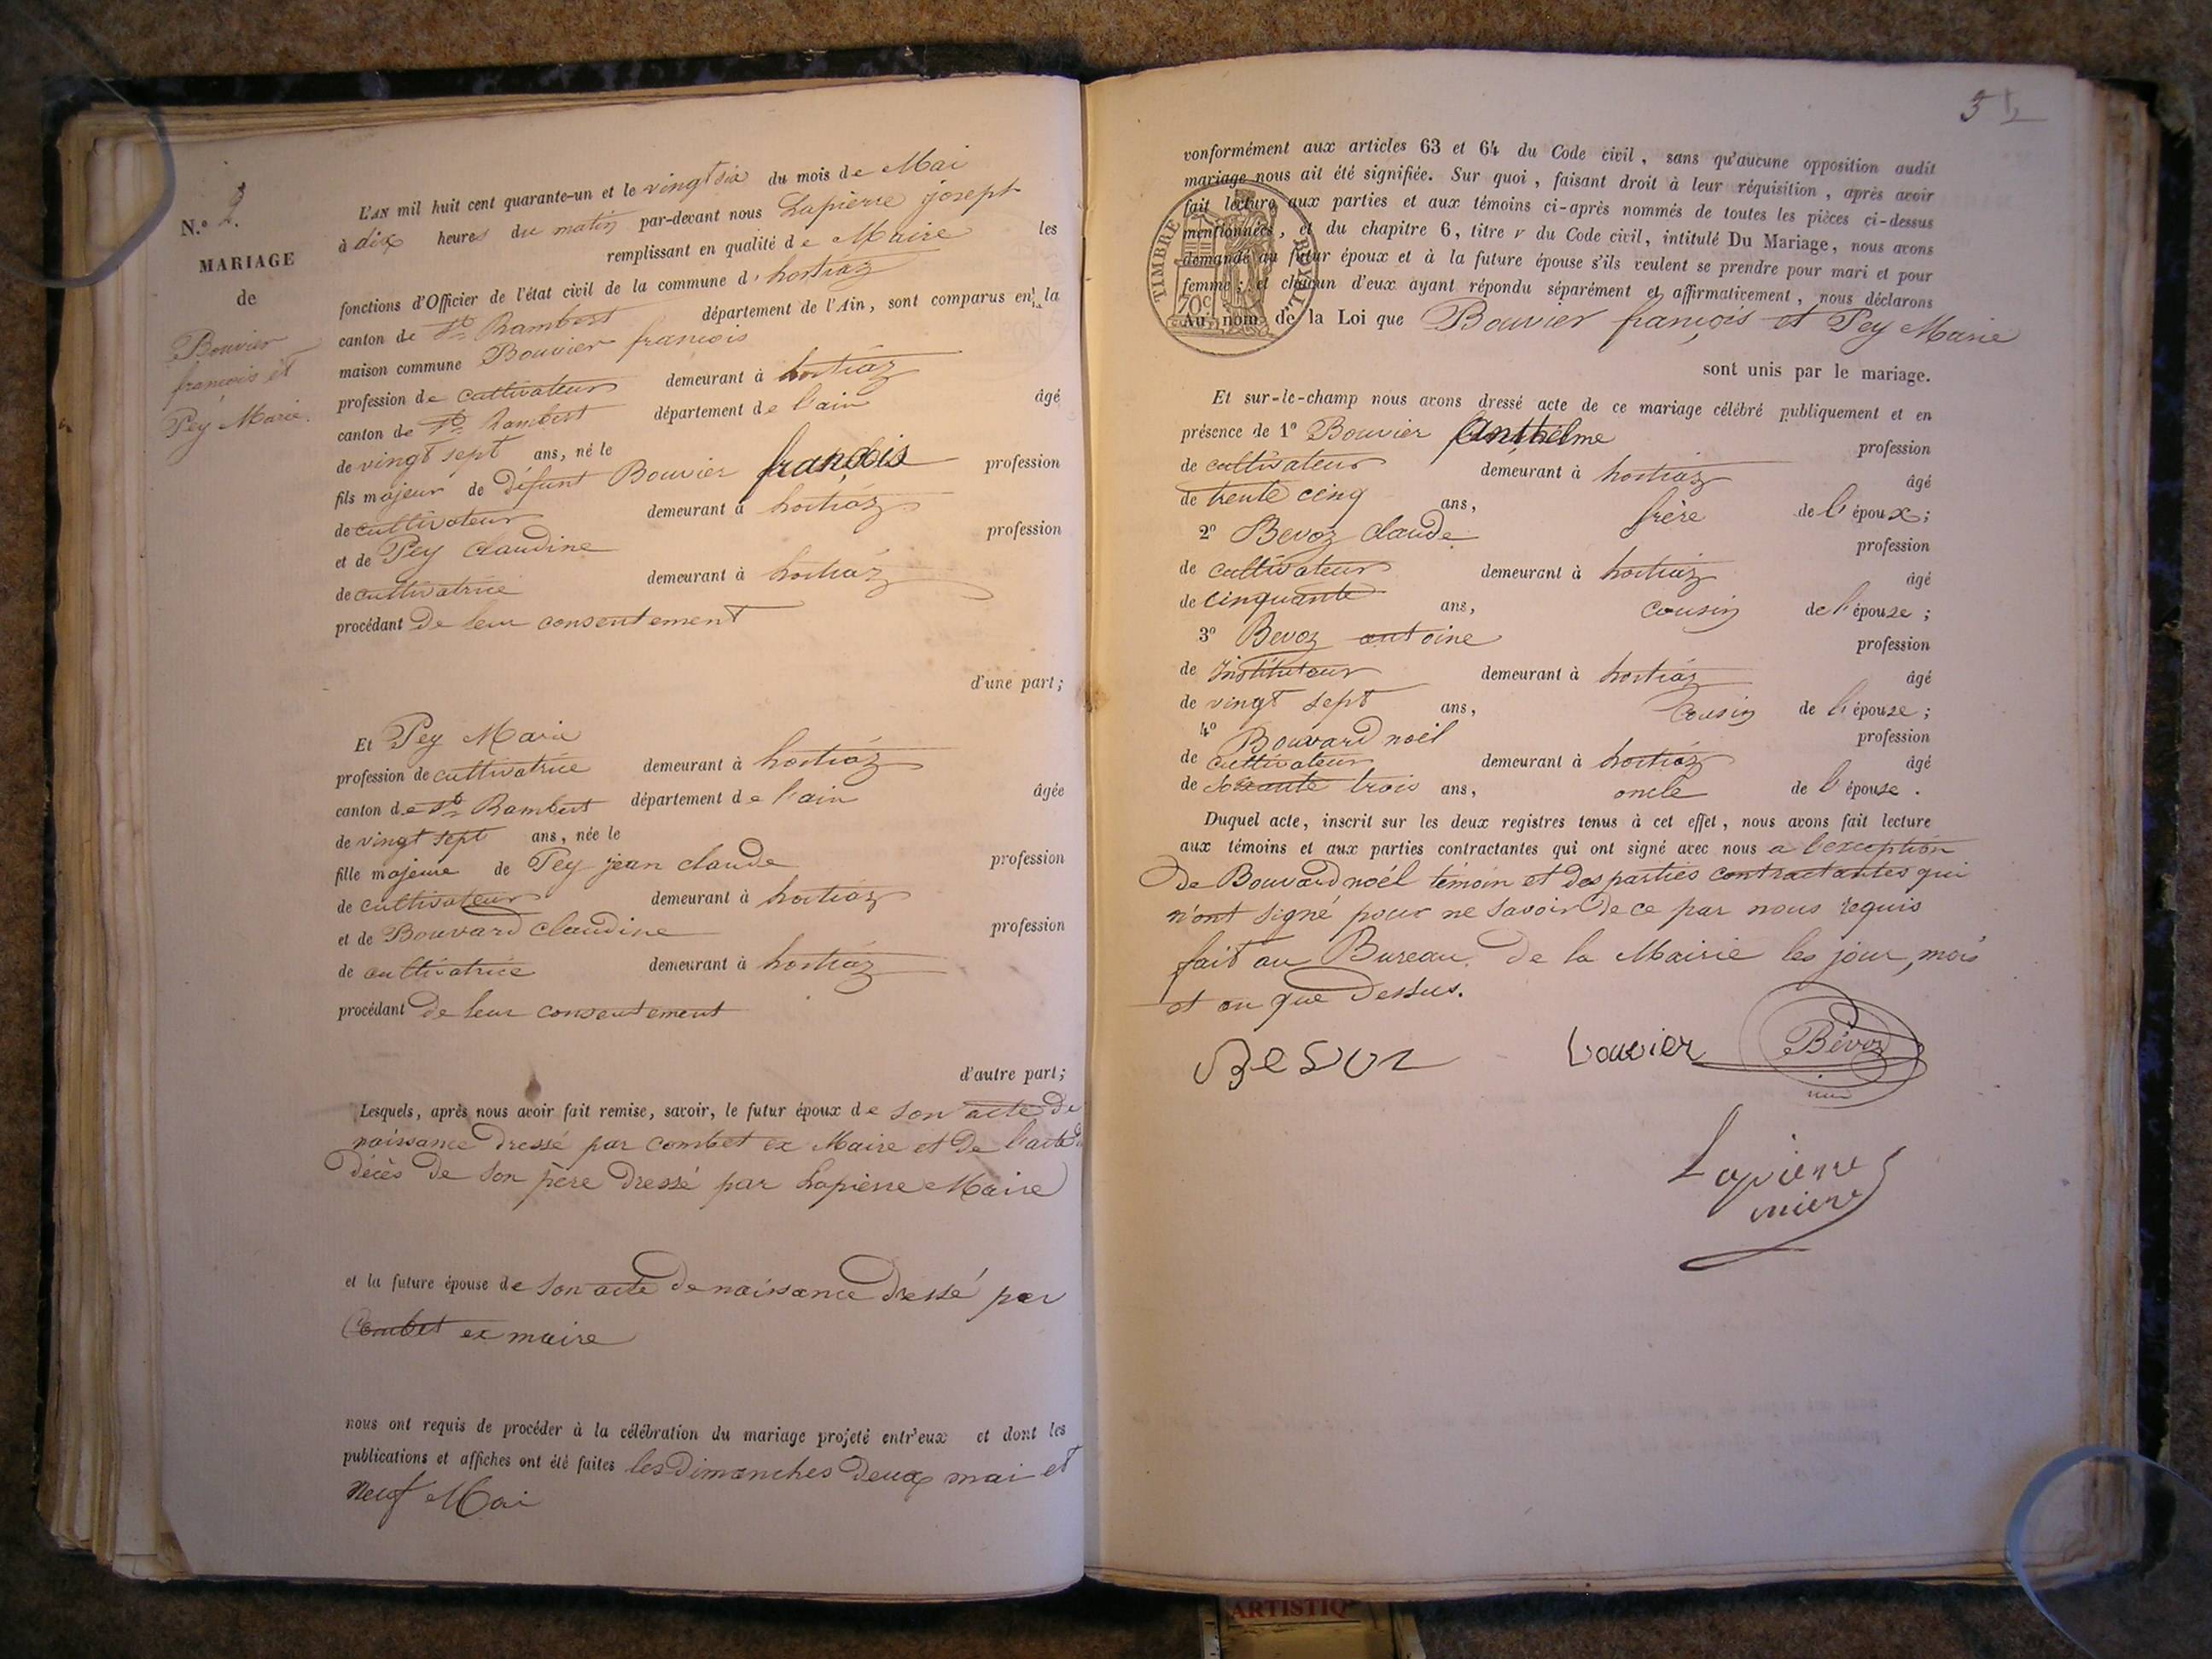 N.º 2.
MARIAGE
de
Bouvier
françois et
Pey Marie.
L'AN mil huit cent quarante-un et le vingt six du mois de Mai
à dix heures du matin par-devant nous Lapierre joseph
remplissant en qualité de Maire les
fonctions d'Officier de l'état civil de la commune d'hostiáz
canton de St Rambert département de l'Ain, sont comparus en la
maison commune Bouvier francois
profession de cultivateur demeurant à hostiáz
canton de St Rambert département de l'ain âgé
de vingt sept ans, né le
fils majeur de Défunt Bouvier françois profession
de cultivateur demeurant à hostiáz
et de Pey Claudine profession
de cultivatrice demeurant à hostiáz
procédant de leur consentement
d'une part;
Et Pey Marie
profession de cultivatrice demeurant à hostiáz
canton de St Rambert département de l'ain âgée
de vingt sept ans, née le
fille majeure de Pey jean claude profession
de cultivateur demeurant à hostiáz
et de Bouvard Claudine profession
de cultivatrice demeurant à hostiáz
procédant de leur consentement
d'autre part;
Lesquels, après nous avoir fait remise, savoir, le futur époux de son acte de
naissance Dressé par combet ex Maire et de l'acte de
Décès de son père Dressé par Lapierre Maire
et la future épouse de son acte de naissance Dressé par
Combet ex maire
nous ont requis de procéder à la célébration du mariage projeté entr'eux et dont les
publications et affiches ont été faites les Dimanches Deux mai et
neuf Mai
3
vonformément aux articles 63 et 64 du Code civil, sans qu'aucune opposition audit
mariage nous ait été signifiée. Sur quoi, faisant droit à leur réquisition, après avoir
fait lecture aux parties et aux témoins ci-après nommés de toutes les pièces ci-dessus
mentionnées, et du chapitre 6, titre v du Code civil, intitulé Du Mariage, nous avons
demandé au futur époux et à la future épouse s'ils veulent se prendre pour mari et pour
femme; et chacun d'eux ayant répondu séparément et affirmativement, nous déclarons
Au nom de la Loi que Bouvier françois et Pey Marie
TIMBRE ROYAL
70c
sont unis par le mariage.
Et sur-le-champ nous avons dressé acte de ce mariage célébré publiquement et en
présence de 1º Bouvier Anthelme profession
de cultivateur demeurant à hostiáz âgé
de trente cinq ans, frère de l'époux;
2º Bevoz claude profession
de cultivateur demeurant à hostiáz âgé
de cinquante ans, cousin de l'épouse;
3º Bevoz antoine profession
de Instituteur demeurant à hostiáz âgé
de vingt sept ans, Cousin de l'épouse;
4º Bouvard noël profession
de cultivateur demeurant à hostiáz âgé
de soixante trois ans, oncle de l'épouse.
Duquel acte, inscrit sur les deux registres tenus à cet effet, nous avons fait lecture
aux témoins et aux parties contractantes qui ont signé avec nous a l'exception
De Bouvard noël témoin et des parties contractantes qui
n'ont signé pour ne savoir de ce par nous requis
fait au Bureau de la Mairie les jour, mois
et an que Dessus.
Bevoz Bouvier Bévoz
Lapierre
miere
ARTISTIQ